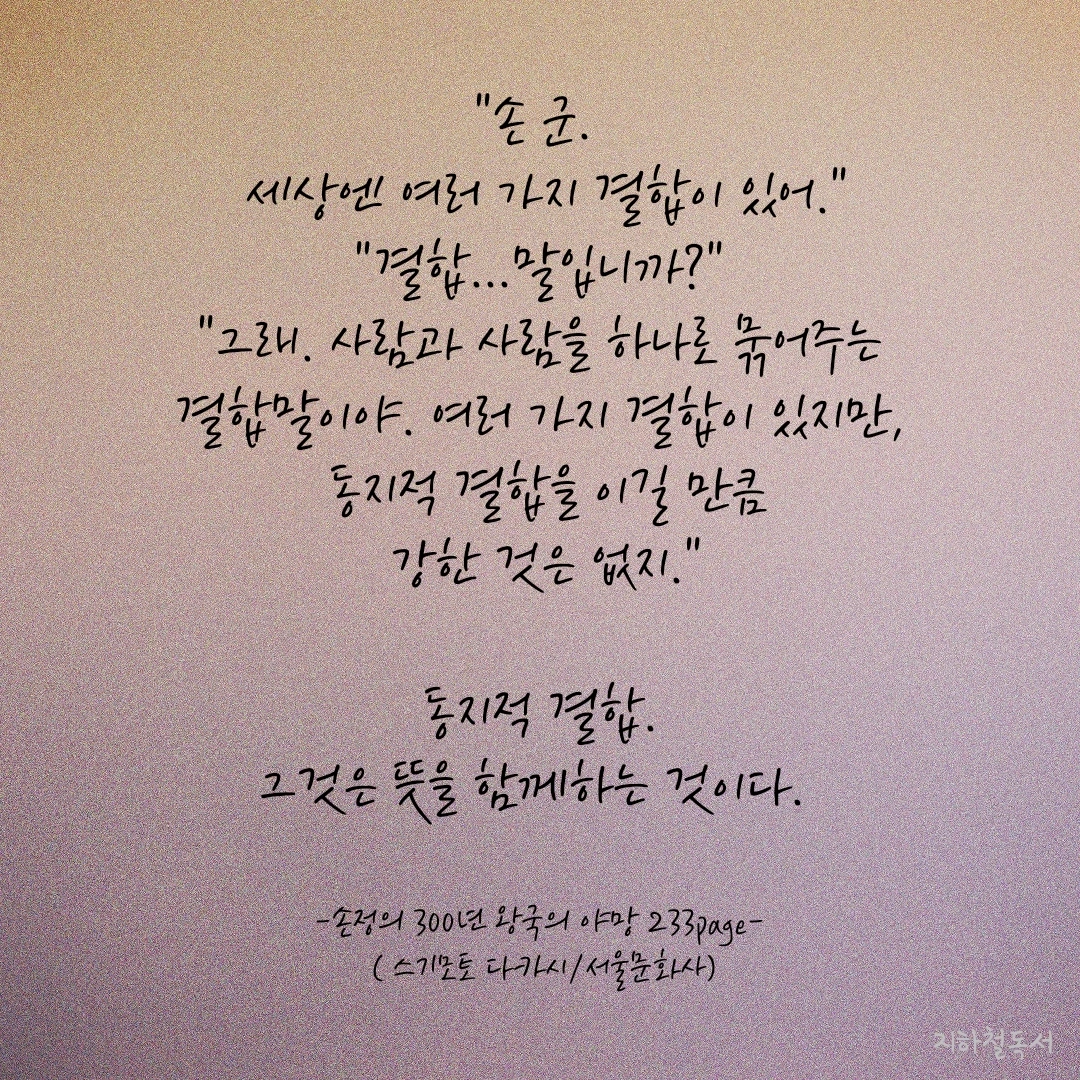 "손 군.
세상엔 여러 가지 결합이 있어."
"결합...말입니까?"
"그래. 사람과 사람을 하나로 묶어주는
결합말이야. 여러 가지 결합이 있지만,
동지적 결합을 이길 만큼
강한 것은 없지."
동지적 결합.
그것은 뜻을 함께하는 것이다.
-손정의 300년 왕국의 야망 233page-
( 스기모토 다카시/서울문화사)
지하철독서